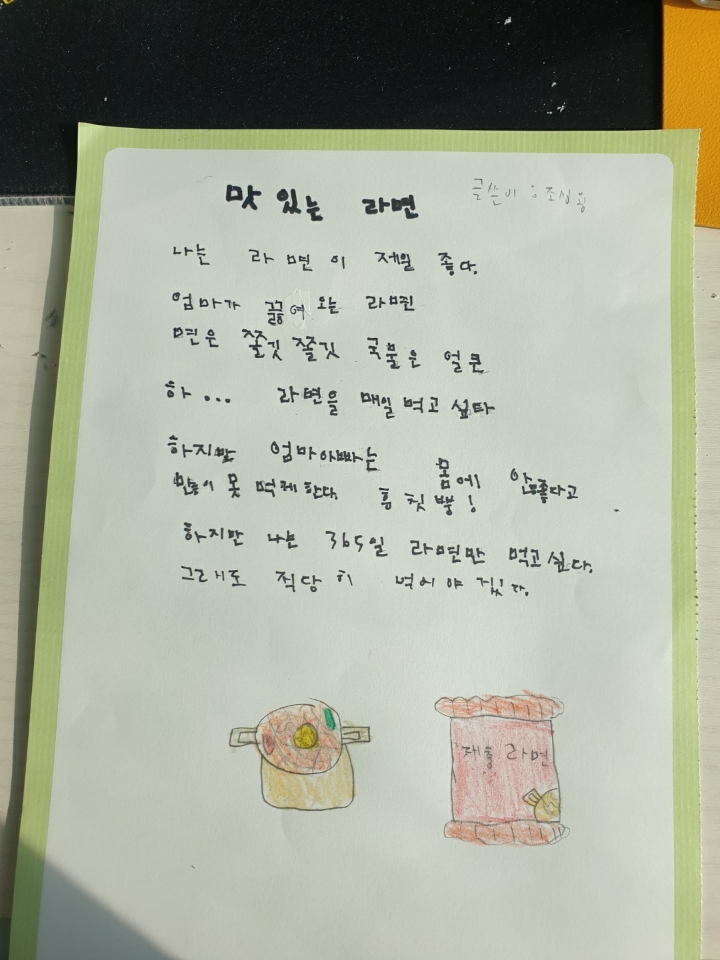 맛있는 라면
글쓴이 : 조성
나는 라면이 제일 좋다.
엄마가 끓여 오는 라면
면은 쫄깃쫄깃 국물은 얼큰
하... 라면을 매일 먹고 싶타
하지만 엄마아빠는 몸에 안좋다고
많이 못 먹게 한다. 흥 칫 뿡!
하지만 나는 365일 라면만 먹고싶다.
그래도 적당히 먹어야 겠다.
라면